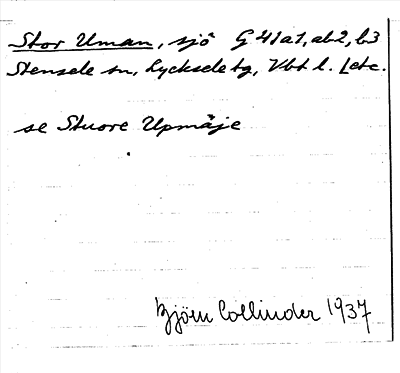 Stor Uman, sjö G 41a1, ab2, b3
Stensele sn, Lycksele tg, Vbt l.
se Stuore Upmäje
Björn Collinder 1937